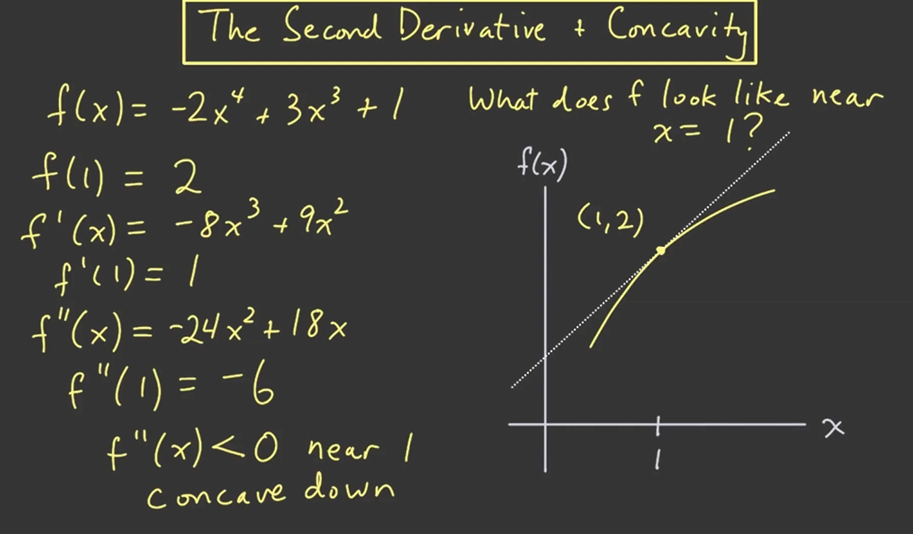 The Second Derivative + Concavity
f(x) = -2x⁴ + 3x³ + 1
f(1) = 2
f'(x) = -8x³ + 9x²
f'(1) = 1
f"(x) = -24x² + 18x
f"(1) = -6
f"(x) < 0 near 1
concave down
What does f look like near
x = 1?
f(x)
(1,2)
x
1